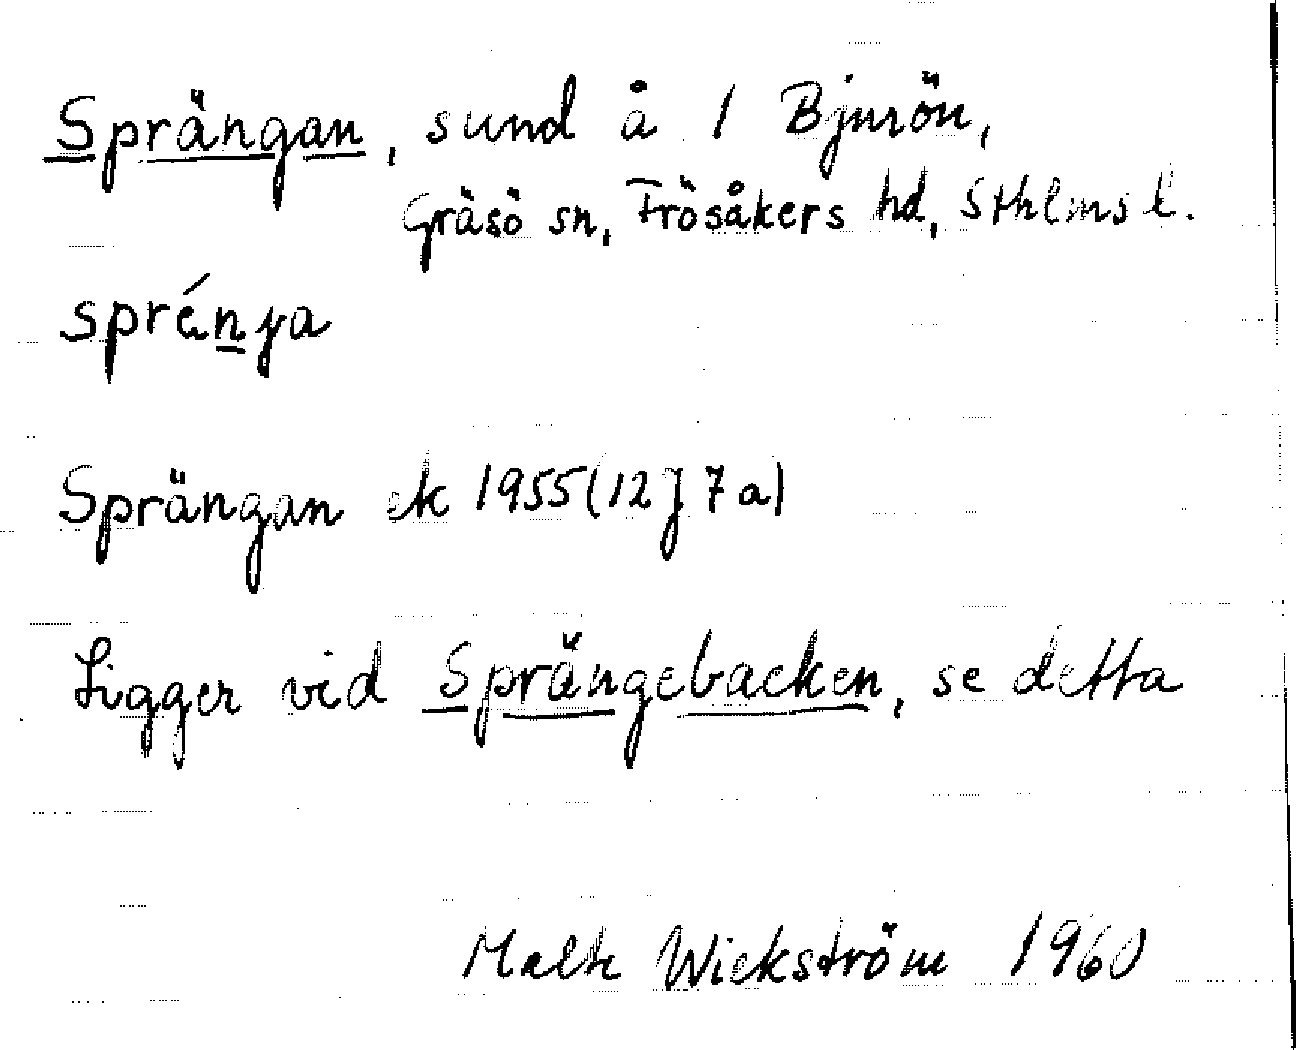 Sprängan, sund å 1 Bjurön,
Gräsö sn, Frösåkers hd, Sthlms l.
sprénya
Sprängan ek 1955 (12J7a)
Ligger vid Sprängebacken, se detta
Malte Wickström 1960